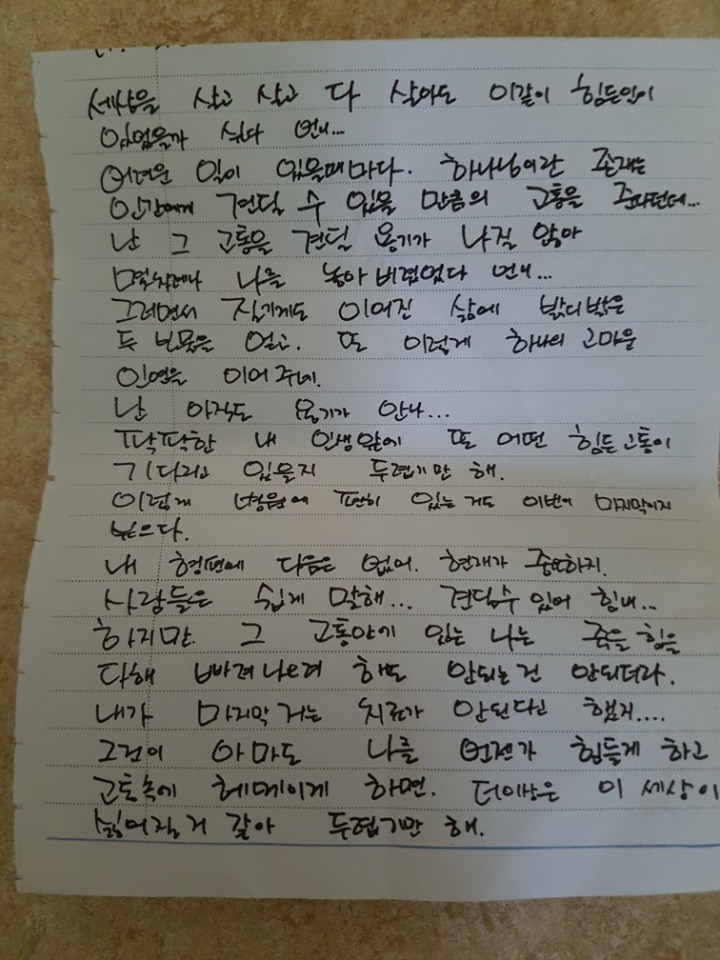 세상을 살고 살고 다 살아도 이같이 힘든인이
있었을가 싶다 언니...
어려운 일이 있을때마다. 하나님이란 존재는
인간에게 견딜 수 있을 만큼의 고통을 준다던데...
난 그 고통을 견딜 용기가 나질 않아
며칠전에나 나를 놓아 버렸었다 언니...
그러면서 질기게도 이어진 삶에
두 얻고. 또 이렇게 하나의 고마운
인연을 이어 주네.
난 아직도 용기가 안나...
팍팍한 내 인생앞에 또 어떤 힘든 고통이
기다리고 있을지 두렵기만 해.
이렇게 병원에 편히 있는 거도 이번이 마지막이지
싶으다.
내 형편에 다음은 없어. 현재가 중요하지.
사람들은 쉽게 말해... 견딜수 있어 힘내..
하지만 그 고통안에 있는 나는 죽을 힘을
다해 빠져나오려 해도 안되는건 안되더라.
내가 마지막 거는 치료가 안된다고 했지....
그것이 아마도 나를 언젠가 힘들게 하고
고통속에 헤메이게 하면. 더이상은 이 세상이
싫어질거 같아 두렵기만 해.